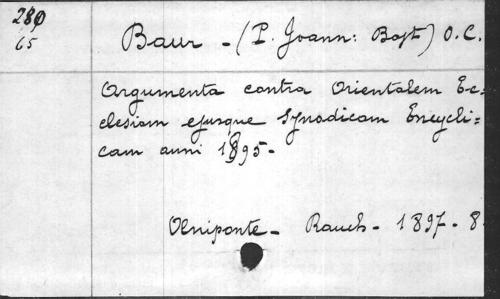 280
65
Baur - (P. Joann: Bapt) O.C.
Argumenta contra Orientalem Ec=
clesiam ejusque Synodicam Encycli=
cam anni 1895.
Oeniponte - Rauch - 1897 - 8